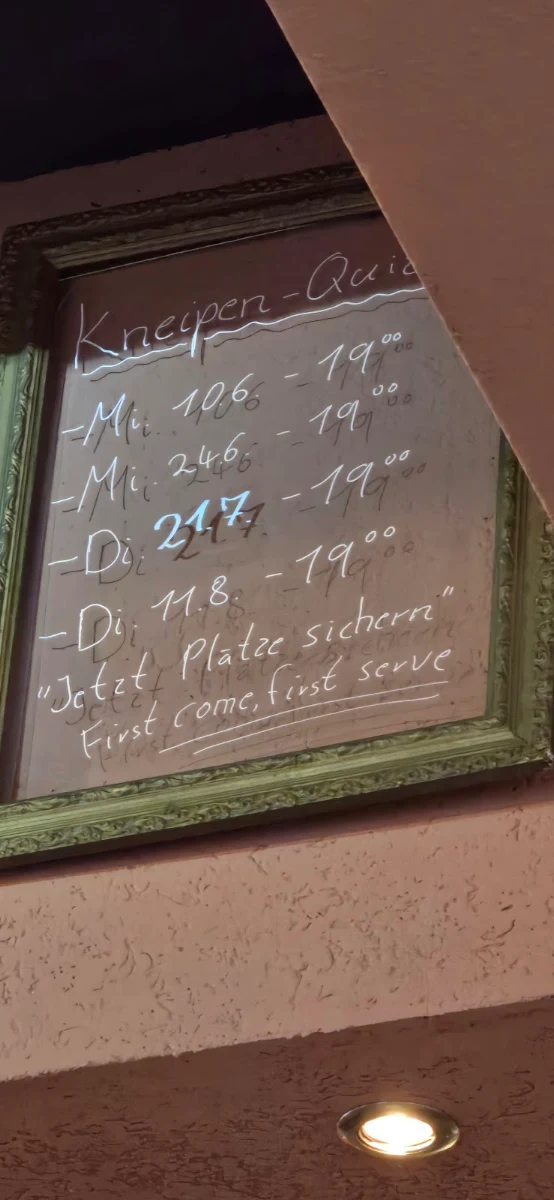 Kneipen-Quiz
- Mi. 10.6. - 19⁰⁰
- Mi. 24.6 - 19⁰⁰
- Di 21.7. - 19⁰⁰
- Di. 11.8. - 19⁰⁰
"Jetzt Plätze sichern"
First come, first serve